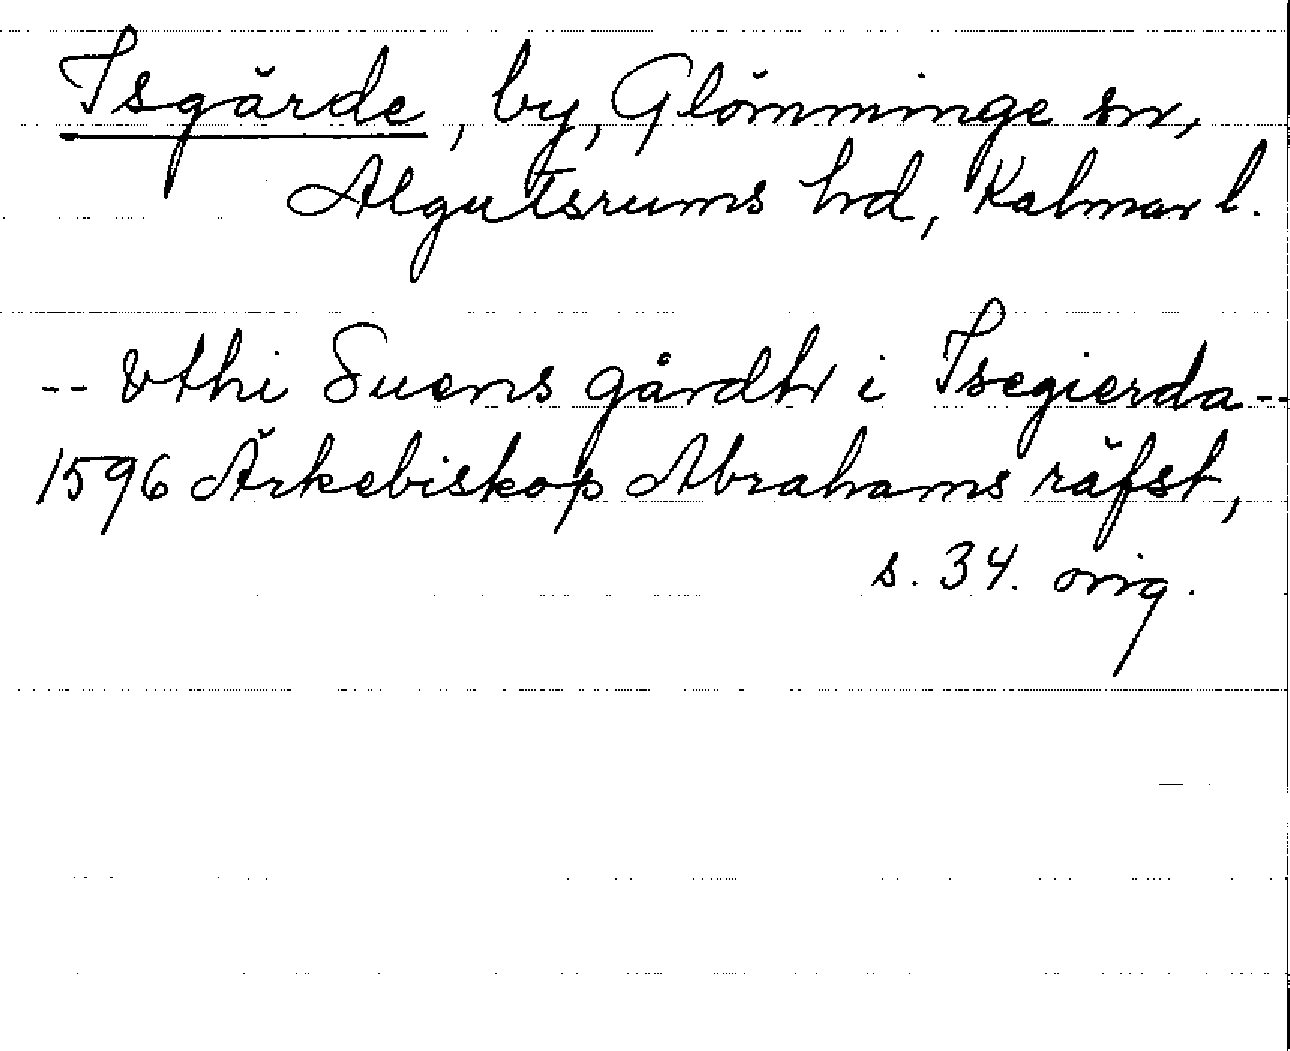 Isgärde, by, Glömminge sn,
Algutsrums hd, Kalmar l.
-- Vthi Suens gårdh i Isegierda --
1596 Ärkebiskop Abrahams räfst,
s. 34. orig.